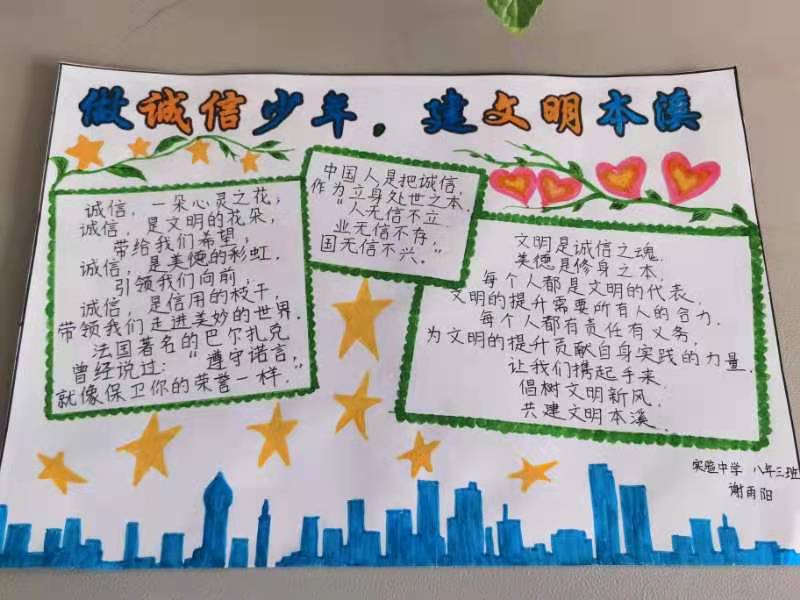 做诚信少年，建文明本溪
诚信，一朵心灵之花，
诚信，是文明的花朵，
带给我们希望，
诚信，是美德的彩虹.
引领我们向前，
诚信，是信用的枝干，
带领我们走进美妙的世界.
法国著名的巴尔扎克
曾经说过：“遵守诺言，
就像保卫你的荣誉一样，”
中国人是把诚信，
作为立身处世之本.
“人无信不立
业无信不存，”
国无信不兴。
文明是诚信之魂
美德是修身之本，
每个人都是文明的代表，
文明的提升需要所有人的合力.
每个人都有责任有义务，
为文明的提升贡献自身实践的力量.
让我们携起手来
倡树文明新风
共建文明本溪.
实验中学 八年三班
谢雨阳